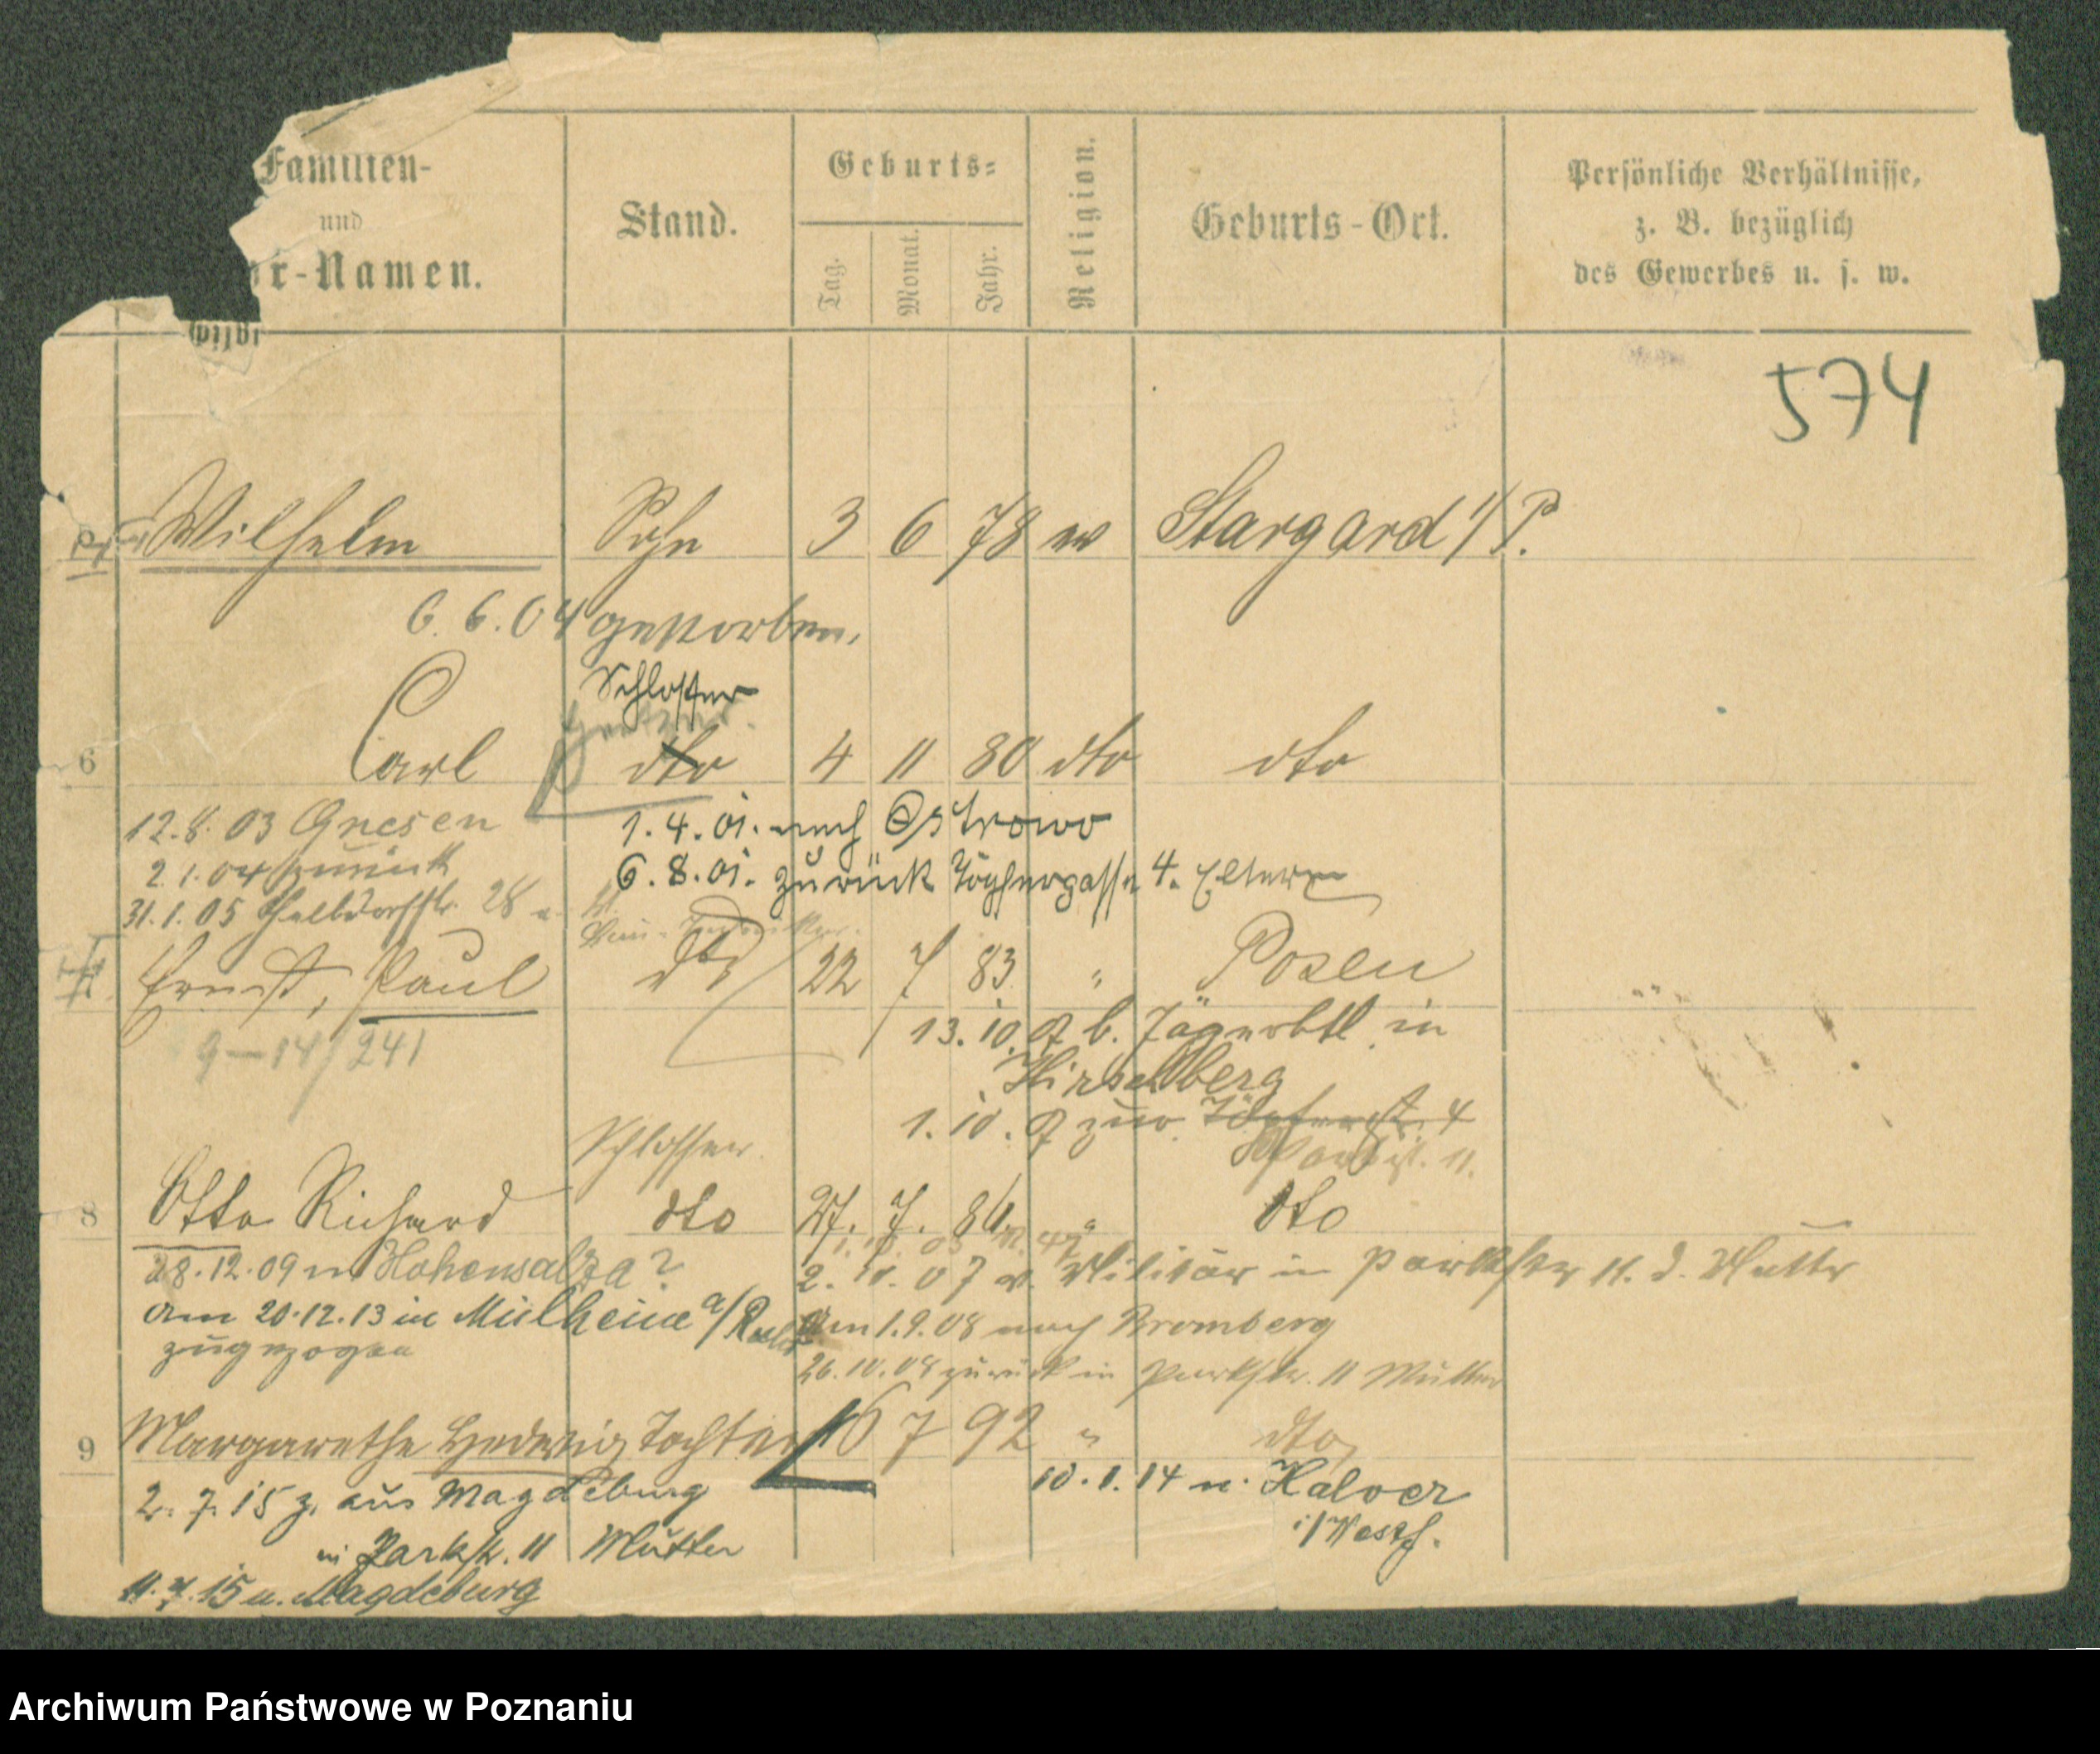 Familien-
und
r-Namen.
Stand.
Geburts-
Tag.
Monat.
Jahr.
Religion.
Geburts-Ort.
Persönliche Verhältnisse,
z. B. bezüglich
des Gewerbes u. s. w.
574
Wilhelm Sohn 3 6 78 ev Stargard i/P.
6. 6. 04 gestorben.
Schlosser
6 Carl dto 4 11 80 dto dto
12.8.03 Gnesen
1.4.01. nach Ostrowo
2.1.04 zurück
6.8.01. zurück Töpfergasse 4. Eltern
31.1.05 28
Ernst, Paul dto 22 7 83 " Posen
9-14/241
13.10. b. Jägerbtl. in
Hirschberg
1.10. zur. Töpfergst. 4
Parkst. 11.
Schlosser.
8 Otto Richard dto 27. 7. 86 " dto
28.12.09 n Hohensalza?
2.10.07 v. Militär in Parkstr 11. d. Mutter
am 20.12.13 in Mülheim a/Ruhr
zugezogen
am 1.9.08 nach Bromberg
26.10.08 zurück in Parkstr. 11 Mutter
9 Margarethe Hedwig Tochter 16 7 92 " dto
10.1.14 n. Halver
i/Westf.
2. 7. 15 z. aus Magdeburg
in Parkstr. 11 Mutter
11.7.15 n. Magdeburg
Archiwum Państwowe w Poznaniu